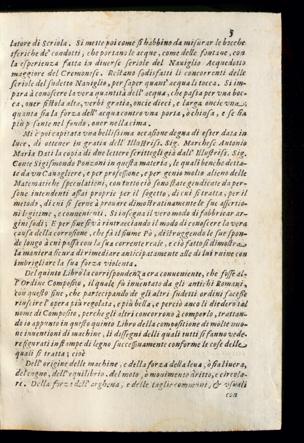 3
latore di Seriola. Si mette poi come si habbino da misurar le bocche
sferiche de' condotti, che portano le acque, come delle fontane, con
la esperienza fatta in diuerse seriole del Nauiglio Acquedotto
maggiore del Cremonese. Restano sodisfatti li concorrenti delle
seriole del sudetto Nauiglio, per saper quant' acqua li tocca. Si im-
para à conoscere la vera quantità dell' acqua, che passa per vna boc-
ca, ouer fistola alta, verbi gratia, oncie dieci, e larga oncie vna,
quanta sia la forza dell' acqua contro vna porta, ò chiusa, e se sia
più possente nel fondo, ouer nella cima.
Mi è poi capitata vna bellissima occasione degna di esser data in
luce, di ottener in gratia dell' Illustriss. Sig. Marchese Antonio
Maria Dati la copia di due lettere scrittegli già dall' Illustriss. Sig.
Conte Sigismondo Ponzoni in questa materia, le quali benche detta-
te da vn Caualliere, e per professione, e per genio molto alieno delle
Matematiche speculationi, con tutto ciò sono state gendicate da per-
sone intendenti assai proprie per il sogetto, di cui si tratta, per il
metodo, di cui si serue à prouare dimostratiuamente le sue assertio-
ni legitime, e conuenienti. Si insegna il vero modo di fabbricar ar-
gini sodi; E per sue viue rintracciando il modo di conoscere la vera
causa della corrosione, che fà il fiume Pò, distruggendo le sue spon-
de lungo à cui passa con la sua corrente reale, e ciò fatto si dimostra
la maniera sicura di rimediare anticipatamente alle di lui ruine con
imbrigliare la sua forza violenta.
Del quinto Libro la corrispondenza era conueniente, che fosse al-
l' Ordine Composito, il quale fù inuentato da gli antichi Romani,
con questo fine, che partecipando de gli altri sudetti ordini facesse
riuscire l' opera più regolata, e più bella, e perciò anco li diedero tal
nome di Composito, perche gli altri concorrono à comporlo, trattan-
do io appunto in questo quinto Libro della compositione di molte nuo-
ue inuentioni di machine, li dissegni delle quali tutti si fanno vede-
re figurati in stampe di legno successiuamente conforme le cose delle
quali si tratta; cioè
Dell' origine delle machine, e della forza della leua, ò sia liuera,
del cugno, dell' equilibrio, del moto, ò mouimento dritto, e circola-
re. Della forza dell' arghena, e delle taglie communi, & vsuali
con